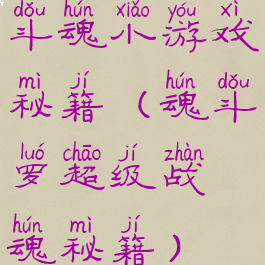 dǒu hún xiǎo yóu xì
斗魂小游戏
mì jí hún dǒu
秘籍（魂斗
luó chāo jí zhàn
罗超级战
hún mì jí
魂秘籍）